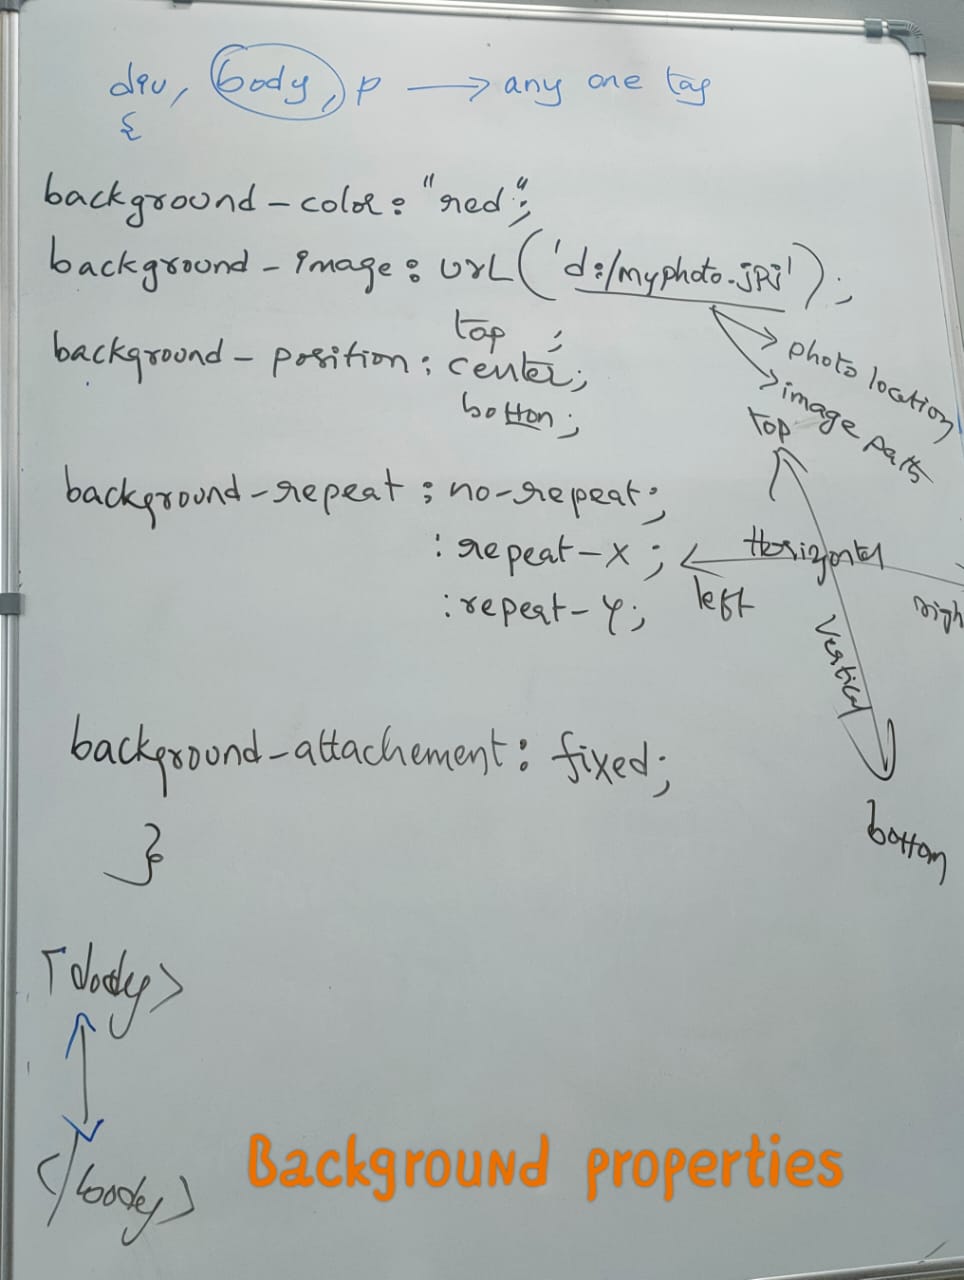 div, body, p → any one tag
{
background-color: "red";
background-image: url('d:/myphoto.jpj');
photo location
image path
top ;
background-position: center;
bottom;
background-repeat: no-repeat;
: repeat-x;
: repeat-y;
top
Horizontal
left
righ
Vertical
bottom
background-attachement: fixed;
}
<body>
</body>
Background properties